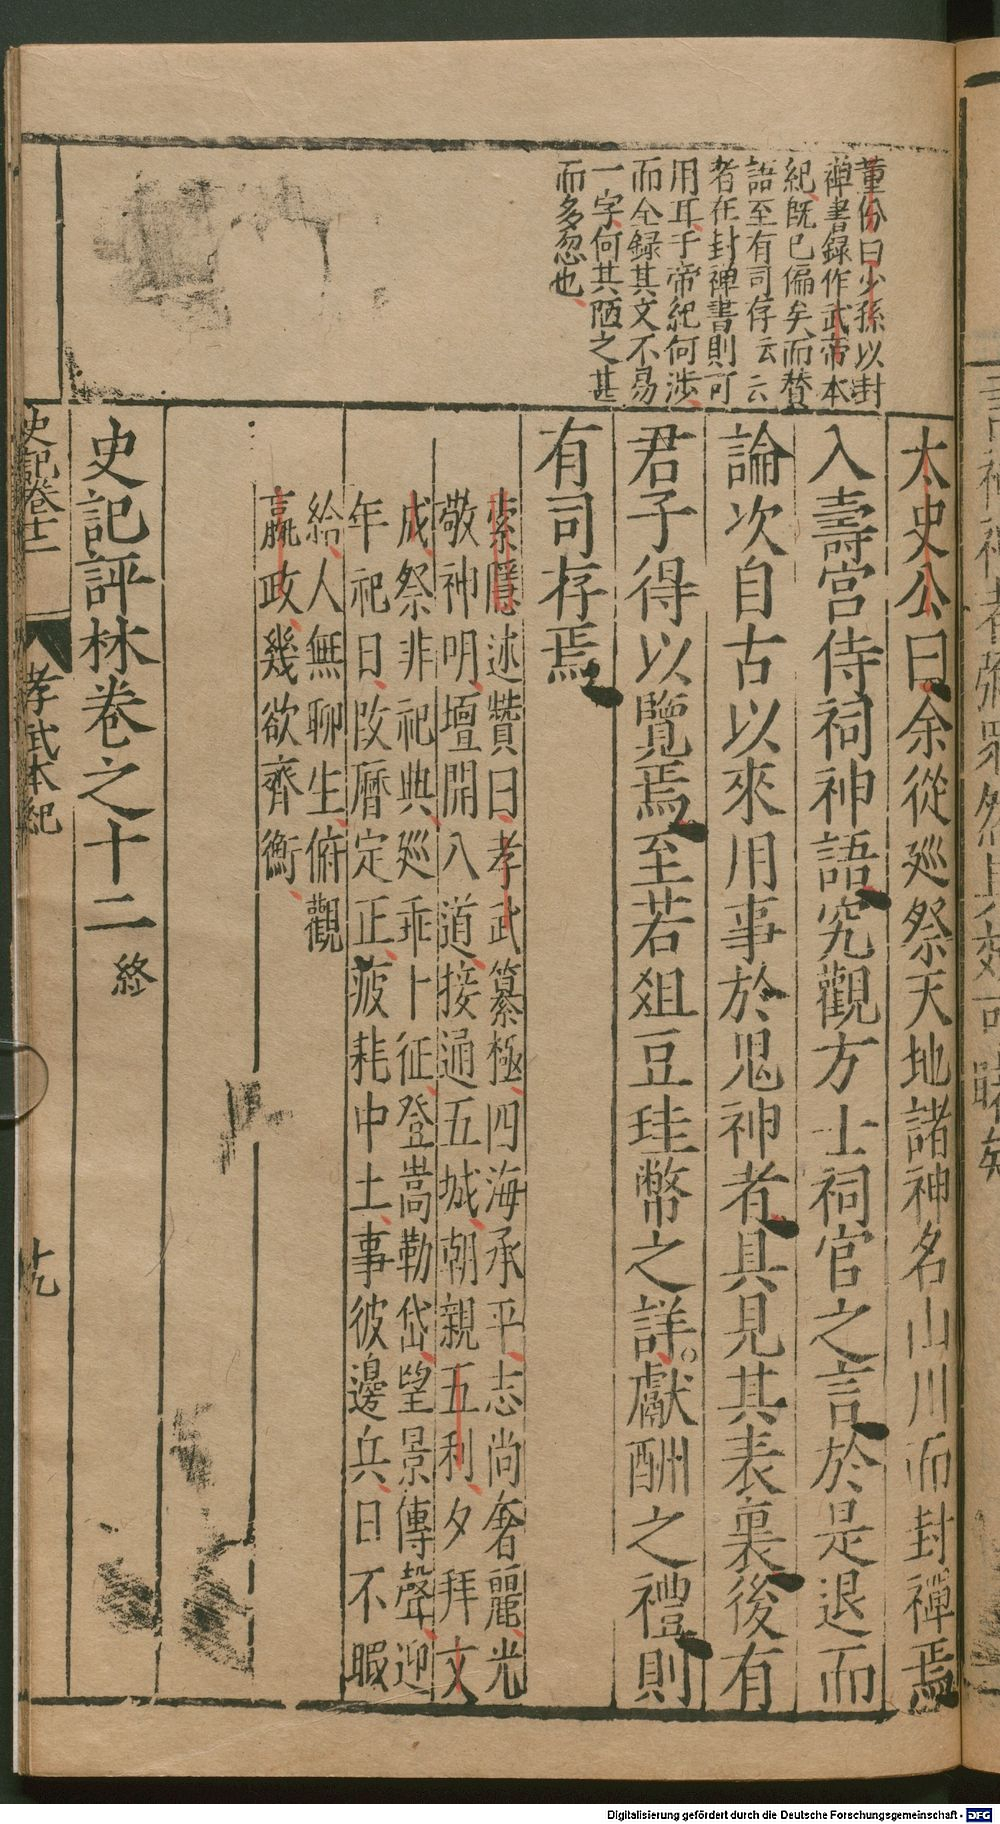 董份曰少孫以封
禪書録作武帝本
紀既已偏矣而賛
語至有司存云云
者在封禅書則可
用耳于帝紀何渉
而全録其文不易
一字何其陋之甚
而多忽也
太史公曰余從廵祭天地諸神名山川而封禪焉
入壽宫侍祠神語究觀方士祠官之言於是退而
論次自古以來用事於鬼神者具見其表裏後有
君子得以覽焉至若俎豆珪幣之詳獻酬之禮則
有司存焉
索隱述贊曰孝武纂極四海承平志尚奢麗光
敬神明壇開八道接通五城朝親五利夕拜文
成祭非祀典廵乖卜征登嵩勒岱望景傳聲迎
年祀日攺曆定正疲耗中土事彼邊兵日不暇
給人無聊生俯觀
嬴政幾欲齊衡
史記評林卷之十二終
史記卷十二
孝武本紀
廿九
Digitalisierung gefördert durch die Deutsche Forschungsgemeinschaft - DFG